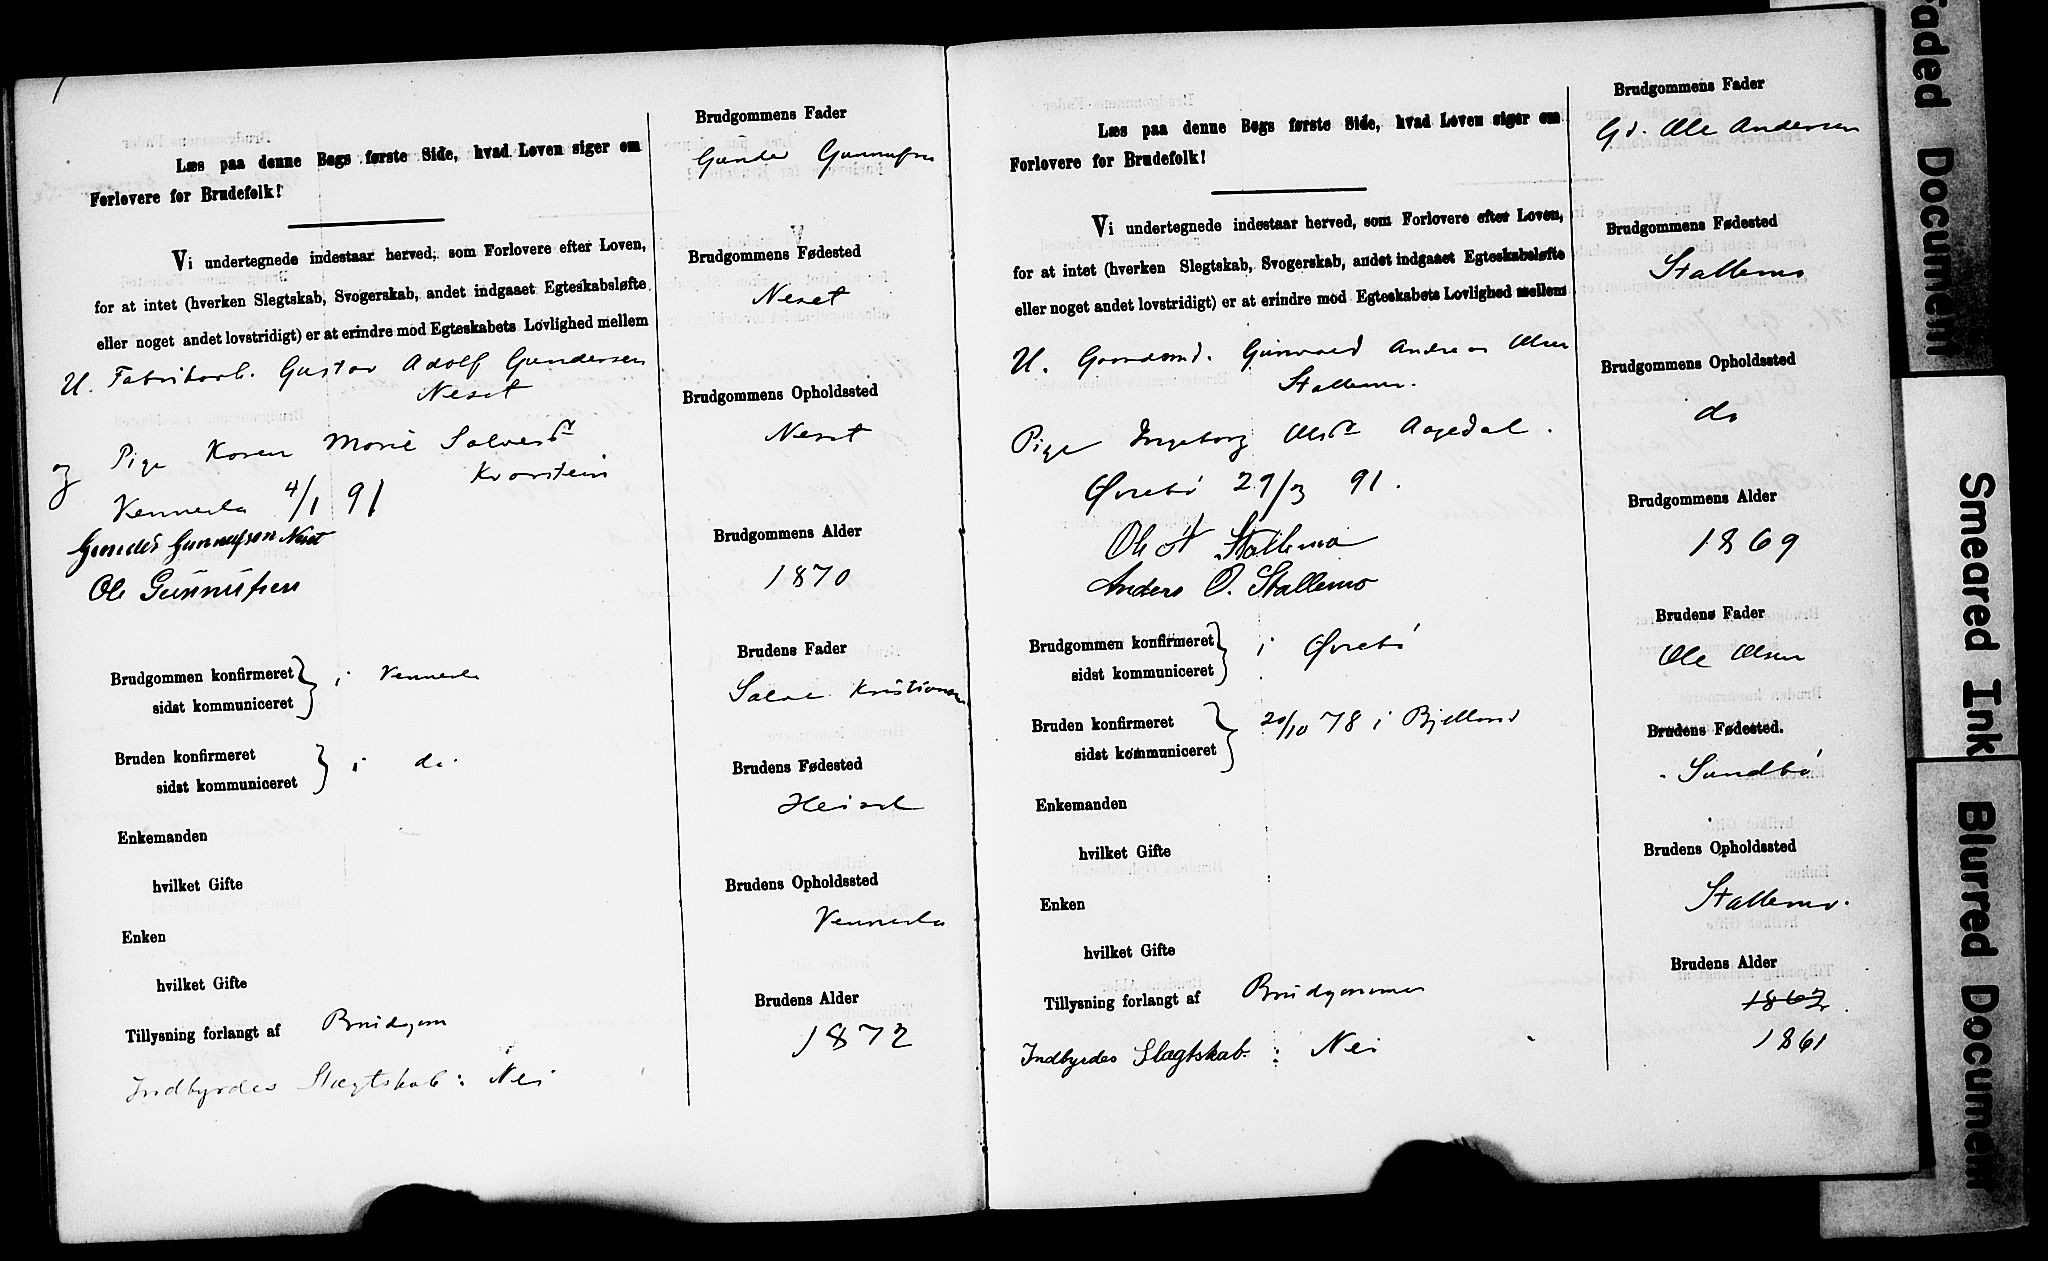 Læs paa denne Bogs første Side, hvad Loven siger om
Forlovere for Brudefolk!
Vi undertegnede indestaar herved, som Forlovere efter Loven,
for at intet (hverken Slegtskab, Svogerskab, andet indgaaet Egteskabsløfte
eller noget andet lovstridigt) er at erindre mod Egteskabets Lovlighed mellem
U. Fabrikarb. Gustav Adolf Gundersen
Neset
og Pige Karen Marie Salvesdr
Kvarstein
Vennesla 4/1 91
Gunder Gunnufsen Neset
Ole Gunnufsen
Brudgommen konfirmeret } i Vennesla
sidst kommuniceret
Bruden konfirmeret } i do.
sidst kommuniceret
Enkemanden
hvilket Gifte
Enken
hvilket Gifte
Tillysning forlangt af Brudgom
Indbyrdes Slægtskab: Nei
Brudgommens Fader
Gunder Gunnufsen
Brudgommens Fødested
Neset
Brudgommens Opholdssted
Neset
Brudgommens Alder
1870
Brudens Fader
Salve Kristiansen
Brudens Fødested
Heisel
Brudens Opholdssted
Vennesla
Brudens Alder
1872
Læs paa denne Bogs første Side, hvad Loven siger om
Forlovere for Brudefolk!
Vi undertegnede indestaar herved, som Forlovere efter Loven,
for at intet (hverken Slegtskab, Svogerskab, andet indgaaet Egteskabsløfte
eller noget andet lovstridigt) er at erindre mod Egteskabets Lovlighed mellem
U. Gaardmd. Gunvald Andreas Olsen
Stallemo.
Pige Ingeborg Olsdr Aagedal.
Øvrebø 29/3 91.
Ole A Stallemo
Anders O. Stallemo
Brudgommen konfirmeret } i Øvrebø
sidst kommuniceret
Bruden konfirmeret } 20/10 78 i Bjelland
sidst kommuniceret
Enkemanden
hvilket Gifte
Enken
hvilket Gifte
Tillysning forlangt af Brudgommen
Indbyrdes Slægtskab: Nei
Brudgommens Fader
Gd. Ole Andersen
Brudgommens Fødested
Stallemo
Brudgommens Opholdssted
do
Brudgommens Alder
1869
Brudens Fader
Ole Olsen
Brudens Fødested.
Sundbø
Brudens Opholdssted
Stallemo.
Brudens Alder
1861
Faded Document
Smeared Ink
Blurred Document